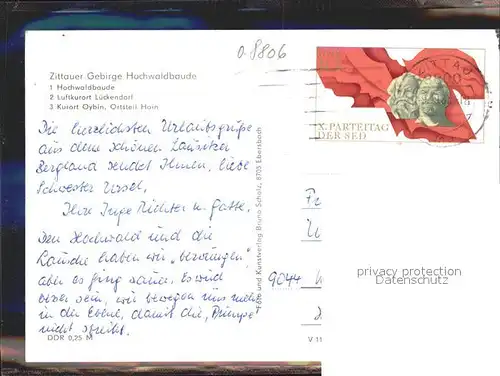 o-8806
Zittauer Gebirge Hochwaldbaude
1 Hochwaldbaude
2 Luftkurort Lückendorf
3 Kurort Oybin, Ortsteil Hain
Die herzlichsten Urlaubsgrüße
aus dem schönen Lausitzer
Bergland sendet Ihnen, liebe
Schwester Ursel,
Ihre Inge Richter u. Gatte.
Den Hochwald und die
Lausche haben wir „bezwungen",
aber es ging sauer. Es wird
besser sein, wir bewegen uns mehr
in der Ebene, damit die „Pumpe"
nicht streikt.
DDR 0,25 M
Foto und Kunstverlag Bruno Scholz, 8705 Ebersbach
X. PARTEITAG
DER SED
9044
privacy protection
Datenschutz
V 11